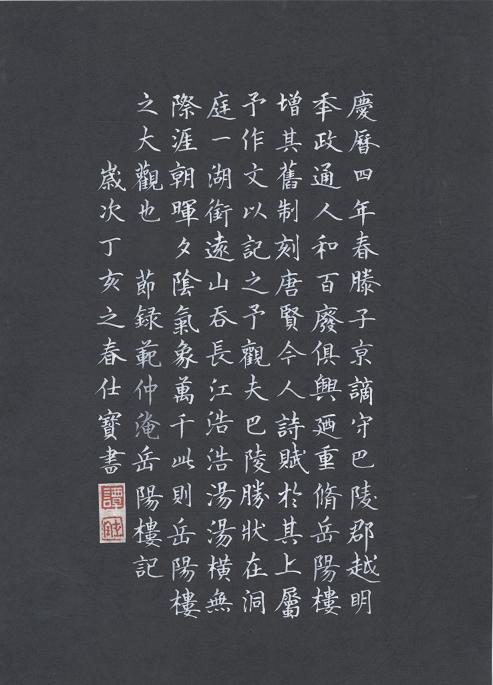 慶曆四年春滕子京謫守巴陵郡越明
秊政通人和百廢俱興廼重脩岳陽樓
增其舊制刻唐賢今人詩賦於其上屬
予作文以記之予觀夫巴陵勝狀在洞
庭一湖銜遠山吞長江浩浩湯湯橫無
際涯朝暉夕陰氣象萬千此則岳陽樓
之大觀也 節録範仲淹岳陽樓記
歲次丁亥之春仕寶書